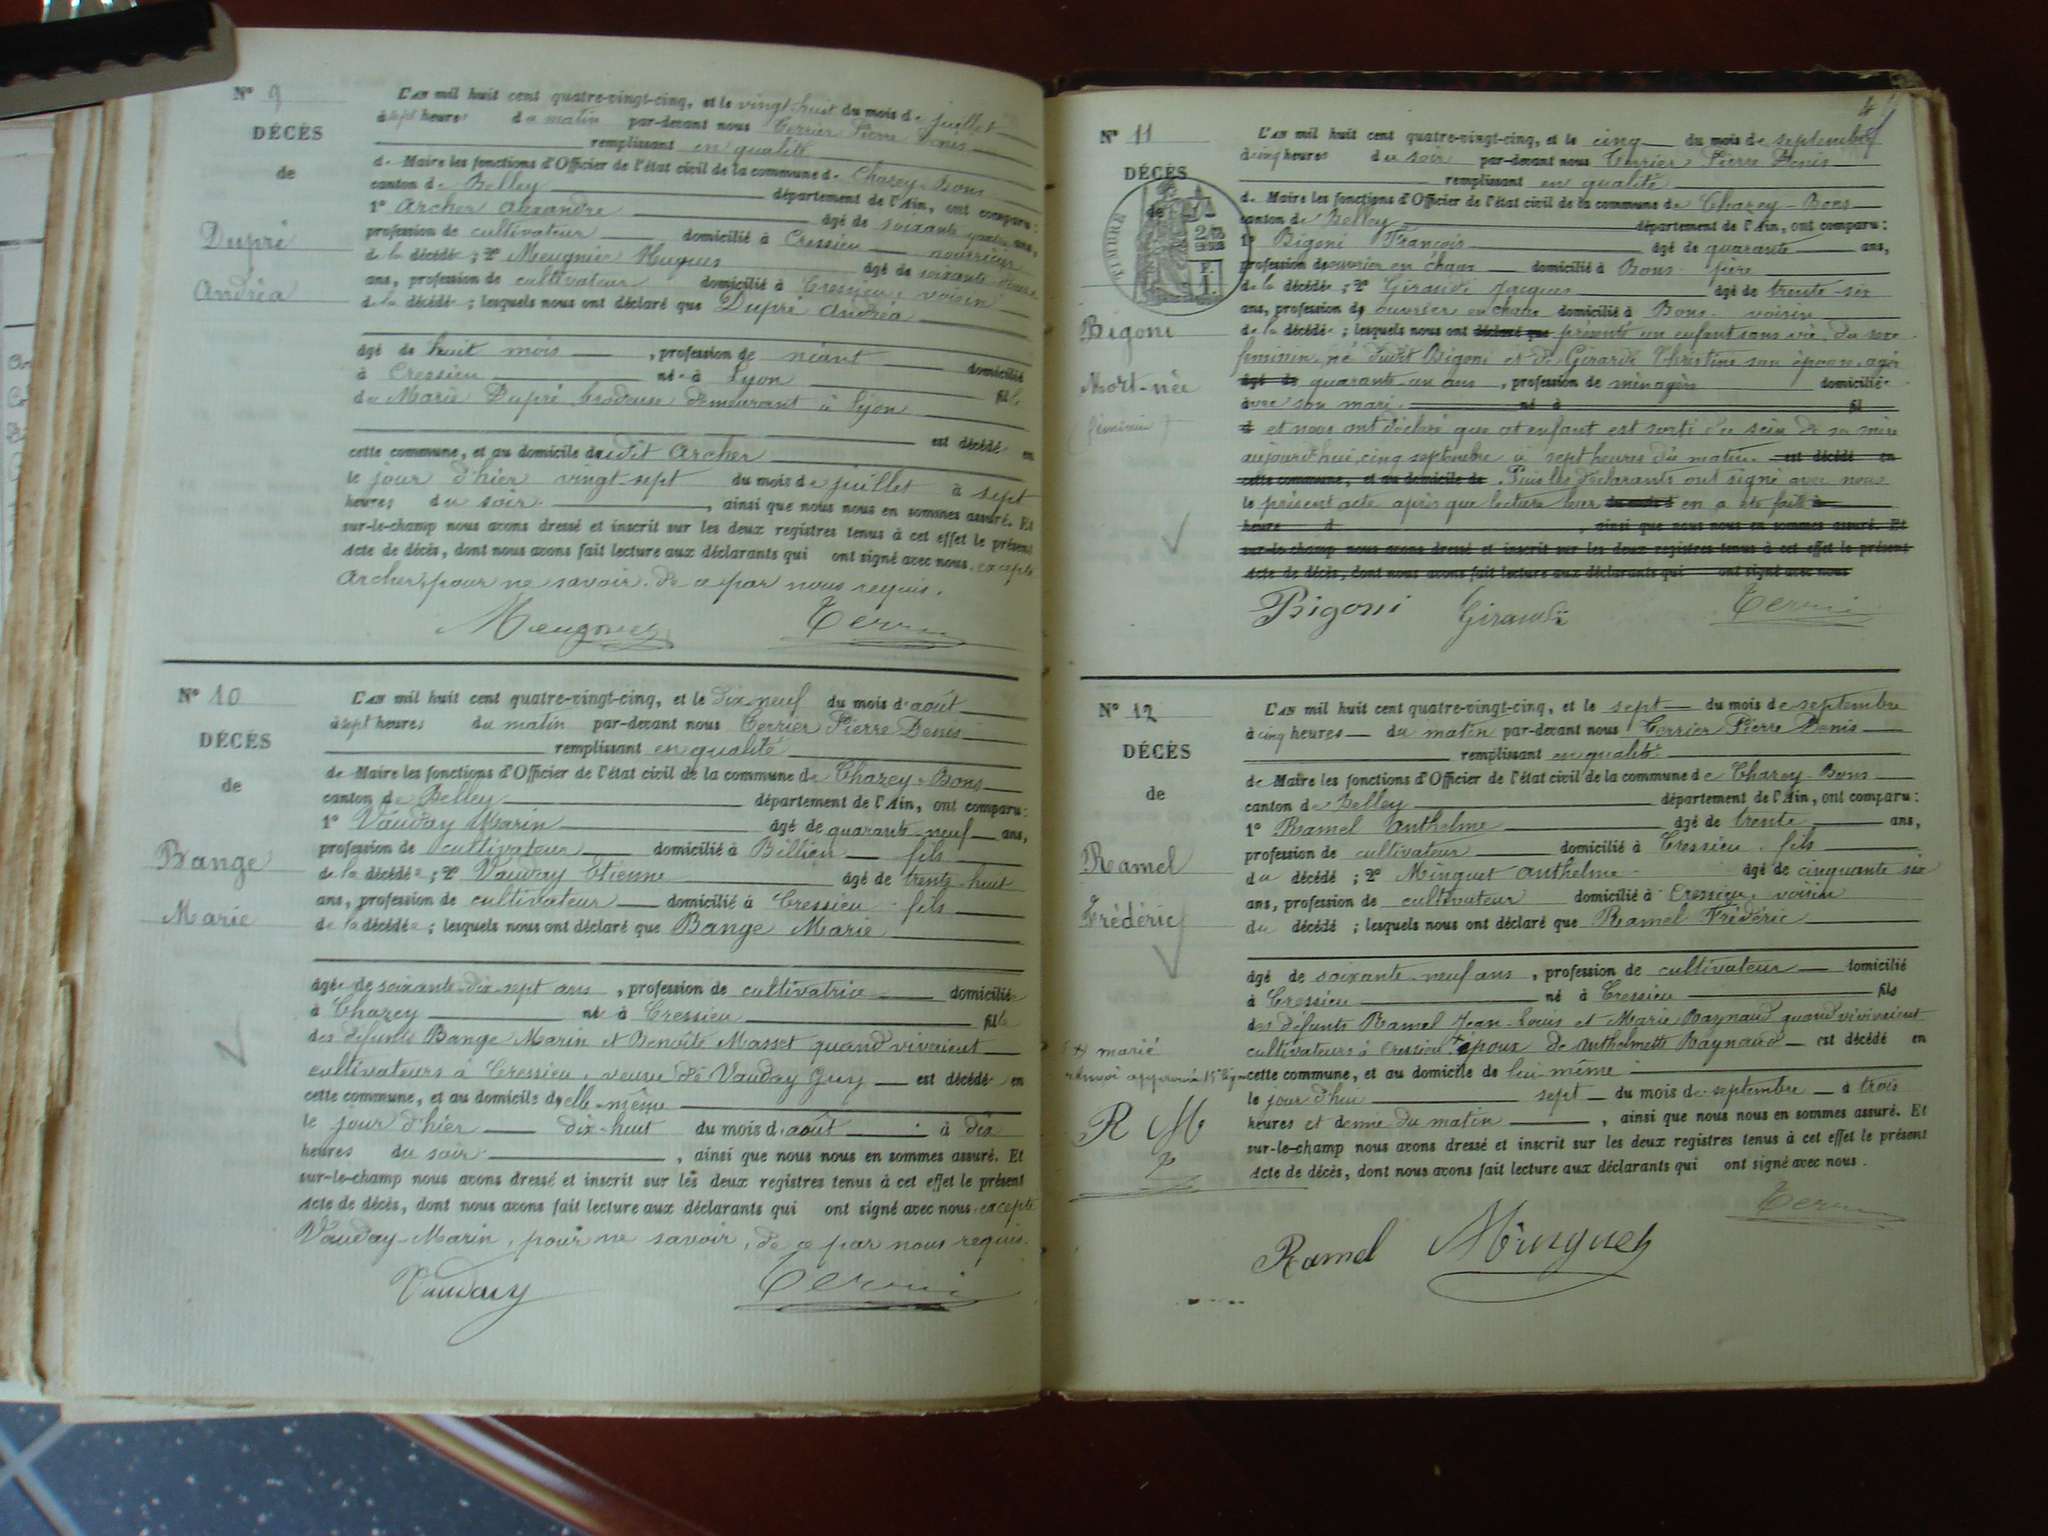 N° 9
DÉCÈS
de
Dupré
Andréa
L'AN mil huit cent quatre-vingt-cinq, et le vingt-huit du mois de juillet
à sept heures du matin par-devant nous Terrier Pierre Denis
remplissant en qualité
de Maire les fonctions d'Officier de l'état civil de la commune de Chazey-Bons
canton de Belley département de l'Ain, ont comparu:
1° Archer Alexandre âgé de soixante quatre ans,
profession de cultivateur domicilié à Cressieu nourricier
de la décédée; 2° Meugnier Hugues âgé de soixante
ans, profession de cultivateur domicilié à Cressieu, voisin
de la décédée; lesquels nous ont déclaré que Dupré Andréa
âgé de huit mois, profession de néant domicilié
à Cressieu née à Lyon fille
de Marie Dupré brodeuse demeurant à Lyon
est décédée en
cette commune, et au domicile dudit Archer
le jour d'hier vingt-sept du mois de juillet à sept
heures du soir, ainsi que nous nous en sommes assuré. Et
sur-le-champ nous avons dressé et inscrit sur les deux registres tenus à cet effet le présent
Acte de décès, dont nous avons fait lecture aux déclarants qui ont signé avec nous, excepté
Archer, pour ne savoir, de ce par nous requis.
Meugnier Terrier
N° 10
DÉCÈS
de
Bange
Marie
L'AN mil huit cent quatre-vingt-cinq, et le dix-neuf du mois d'août
à sept heures du matin par-devant nous Terrier Pierre Denis
remplissant en qualité
de Maire les fonctions d'Officier de l'état civil de la commune de Chazey-Bons
canton de Belley département de l'Ain, ont comparu:
1° Vauday Marin âgé de quarante-neuf ans,
profession de cultivateur domicilié à Billieu fils
de la décédée; 2° Vauday Etienne âgé de trente-huit
ans, profession de cultivateur domicilié à Cressieu fils
de la décédée; lesquels nous ont déclaré que Bange Marie
âgée de soixante-dix-sept ans, profession de cultivatrice domiciliée
à Chazey née à Cressieu fille
des défunts Bange Marin et Benoîte Masset quand vivaient
cultivateurs à Cressieu, veuve de Vauday Guy est décédée en
cette commune, et au domicile d'elle-même
le jour d'hier dix-huit du mois d'août à dix
heures du soir, ainsi que nous nous en sommes assuré. Et
sur-le-champ nous avons dressé et inscrit sur les deux registres tenus à cet effet le présent
Acte de décès, dont nous avons fait lecture aux déclarants qui ont signé avec nous, excepté
Vauday Marin, pour ne savoir, de ce par nous requis.
Vauday Terrier
4
N° 11
DÉCÈS
de
TIMBRE
Bigoni
Mort-née
féminin
L'AN mil huit cent quatre-vingt-cinq, et le cinq du mois de septembre
à cinq heures du soir par-devant nous Terrier Pierre Denis
remplissant en qualité
de Maire les fonctions d'Officier de l'état civil de la commune de Chazey-Bons
canton de Belley département de l'Ain, ont comparu:
1° Bigoni François âgé de quarante ans,
profession d'ouvrier en chaux domicilié à Bons père
de la décédée; 2° Giraudi Jacques âgé de trente-six
ans, profession d'ouvrier en chaux domicilié à Bons voisin
de la décédée; lesquels nous ont déclaré que présenté un enfant sans vie, du sexe
féminin, né dudit Bigoni et de Girardi Christine son épouse, agée
âgé de quarante un ans, profession de ménagère domiciliée
avec son mari né à fil
d et nous ont déclaré que cet enfant est sorti du sein de sa mère
aujourd'hui cinq septembre à sept heures du matin est décédé en
cette commune, et au domicile de Puis les déclarants ont signé avec nous
le présent acte après que lecture leur du mois d en a été faite à
heure d , ainsi que nous nous en sommes assuré. Et
sur-le-champ nous avons dressé et inscrit sur les deux registres tenus à cet effet le présent
Acte de décès, dont nous avons fait lecture aux déclarants qui ont signé avec nous
Bigoni Giraudi Terrier
N° 12
DÉCÈS
de
Ramel
Frédéric
(+) marié
renvoi approuvé 15e ligne
R M
T
L'AN mil huit cent quatre-vingt-cinq, et le sept du mois de septembre
à cinq heures du matin par-devant nous Terrier Pierre Denis
remplissant en qualité
de Maire les fonctions d'Officier de l'état civil de la commune de Chazey-Bons
canton de Belley département de l'Ain, ont comparu:
1° Ramel Anthelme âgé de trente ans,
profession de cultivateur domicilié à Cressieu, fils
du décédé; 2° Minguet Anthelme âgé de cinquante six
ans, profession de cultivateur domicilié à Cressieu, voisin
du décédé; lesquels nous ont déclaré que Ramel Frédéric
âgé de soixante-neuf ans, profession de cultivateur domicilié
à Cressieu né à Cressieu fils
des défunts Ramel Jean-Louis et Marie Raynaud quand vivaient
cultivateurs à Cressieu + époux de Anthelmette Raynaud est décédé en
cette commune, et au domicile de lui-même
le jour d'hui sept du mois de septembre à trois
heures et demie du matin, ainsi que nous nous en sommes assuré. Et
sur-le-champ nous avons dressé et inscrit sur les deux registres tenus à cet effet le présent
Acte de décès, dont nous avons fait lecture aux déclarants qui ont signé avec nous.
Terrier
Ramel Minguet